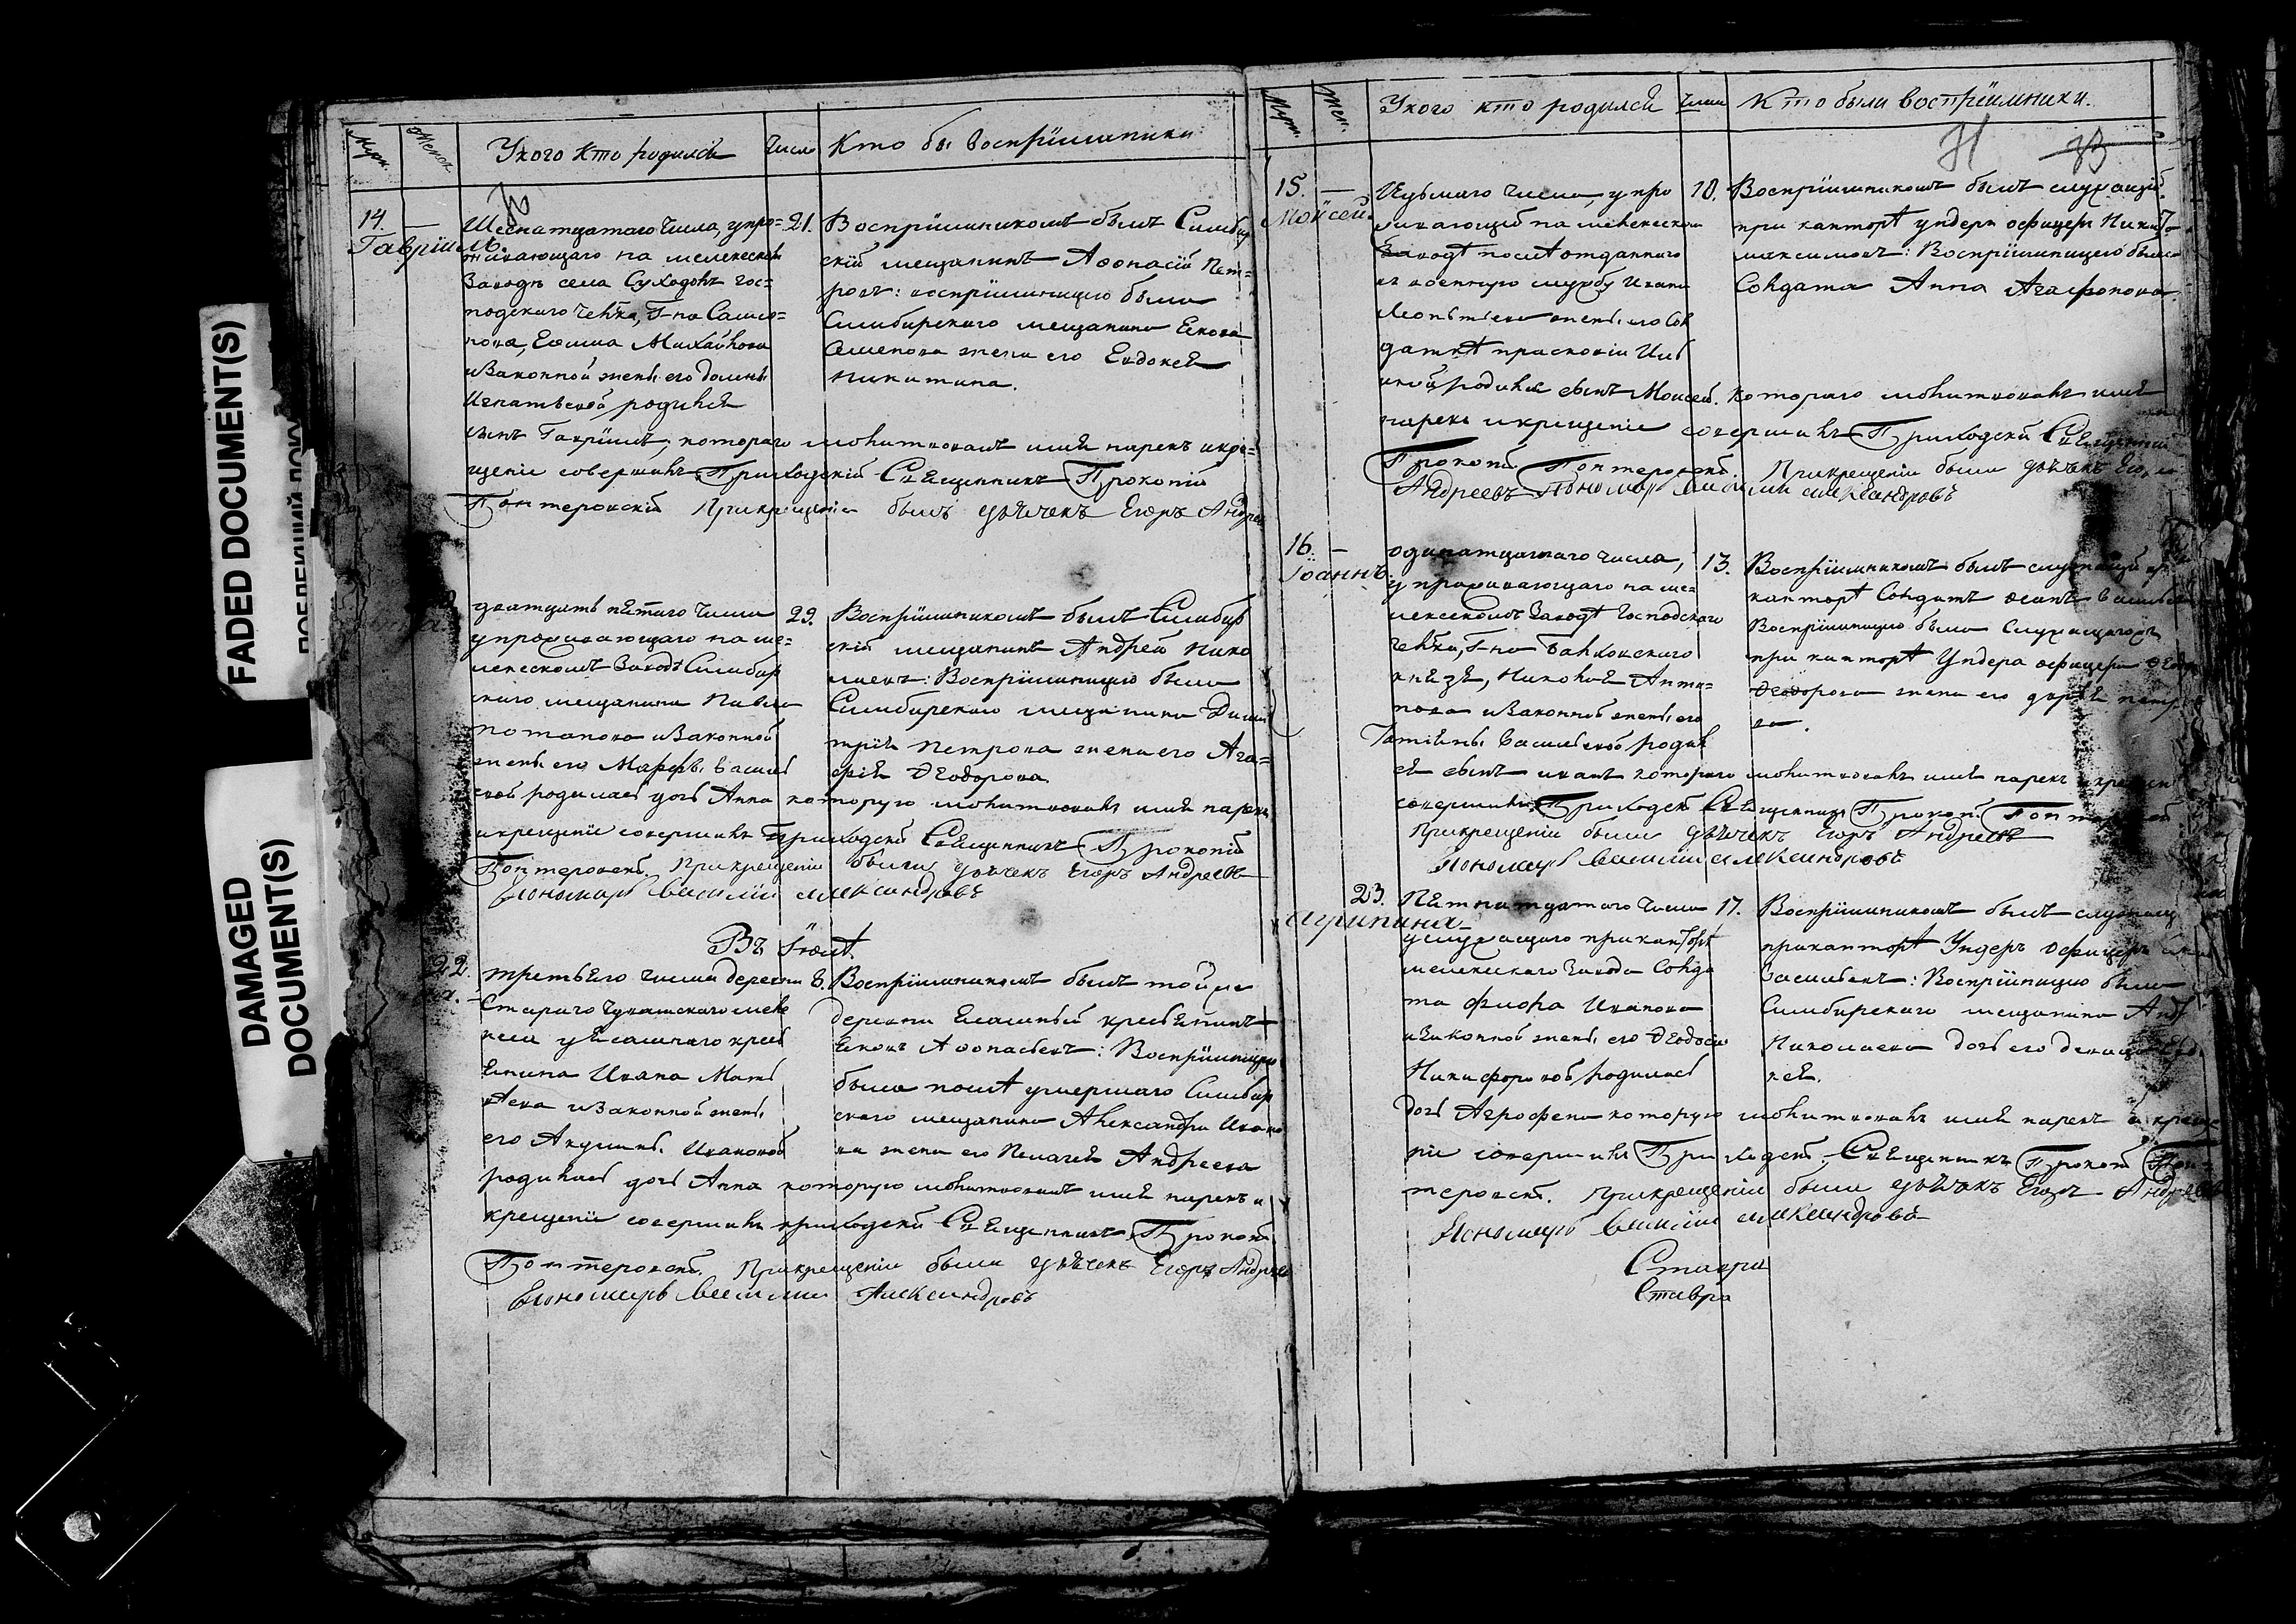 FADED DOCUMENT(S)
DAMAGED
DOCUMENT(S)
Муж.
Женск
Укого Кто родился
Число
Кто бы воспрїимники
14. —
Гаврїилъ.
Шеснатцатаго Числа, упро=
живающаго на мелекескомъ
Заводѣ села Суходонъ гос=
подскаго челѣка, Г-на Самсо=
нова, Ефима Михайлова
изаконной жены его домны
Игнатьевой родился
сынъ Гаврїилъ, котораго молитвовалъ имя нарекъ икре=
щенїе совершилъ Приходскїй Священникъ Прокопїй
Понтеровскїй Прикрещенїи былъ дьячекъ Егоръ Андрее
21.
Воспрїимникомъ былъ Симбир
скїй мещанинъ Аѳонасїй Пет=
ровъ: воспрїимницею была
Симбирскаго мещанина Якова
Семенова жена его Евдокея
никитина.
дватцать пятаго Числа
упроживающаго на ме=
лекескомъ Заводѣ Симбир
скаго мещанина Павла
потапова изаконной
жены его Марфы васильь
евой родилась дочь Анна которую молитвовалъ имя нарекъ
икрещенїе совершилъ Приходской Священникъ Прокопїй
Понтеровской. Прикрещенїи были дьячекъ Егоръ Андреевъ
Пономарь Василїи александровъ
29.
Воспрїимникомъ былъ Симбир
скїй мещанинъ Андрей Нико
лаевъ: Воспрїимницею была
Симбирскаго мещанина Дими
трїя петрова жена его Ага=
фїя Ѳеодорова.
Въ Їюлѣ.
22
третьяго числа деревни
Стараго Чувашскаго меле
кеса уясашнаго кресь
янина Ивана Мать
вѣева изаконной жены
его Акулины Ивановой
родилась дочь Анна которую молитвовалъ имя нарекъ и
крещенїе совершилъ приходской Священникъ Прокопїй
Понтеровской. Прикрещенїи были дьячекъ Егоръ Андреев
Пономарь Василїи Александровъ
8.
Воспрїимникомъ былъ тойже
деревни Ясашный кресьянинъ
Яковъ Аѳонасьевъ: Воспрїимницею
была послѣ умершаго Симбир
скаго мещанина Александра Ивано
ва жена его Пелагея Андреева
Муж.
Жен.
Укого кто родился
Число
Кто были воспрїимники.
15. —
Моѵсей.
Седьмаго числа, упро
живающей на мелекеском
Заводѣ послѣ отданнаго
въ военную службу Ивана
Леонтьева жены, его Сол
даткѣ прасковїи Иль
иной родился сынъ Моисей. котораго молитвовалъ имя
нарекъ икрещенїе совершилъ Приходской Священникъ
Прокопїй Понтеровской. Прикрещенїи были дьячекъ Егоръ
Андреевъ Пономарь Василїи александровъ
10.
Воспрїимникомъ былъ служащїй
при канторѣ ундеръ офицеръ Никита
максимовъ: Воспрїимницею была
Солдатка Анна Агафонова.
16. —
Їоаннъ.
одинатцатаго числа,
упроживающаго на ме=
лекескомъ Заводѣ Господскаго
челѣка, Г-на Балковскаго
князя, Николая Анти=
пова изаконной жены, его
Татїяны васильевой родил
ся сынъ иванъ котораго молитвовалъ имя нарекъ икрещенїе
совершилъ Приходской Священникъ Прокопїй Понтеровской
Прикрещенїи были дьячекъ Егоръ Андреевъ
Пономарь Василїи александровъ
13.
Воспрїимникомъ былъ служащїй при
канторѣ Солдатъ осипъ васильевъ
Воспрїимницею была Служащаго
при канторѣ Ундера офицера
Ѳеодорова жена его дарья петро
ва.
23.
Агрипина
Пятнатцатаго Числа
услужащаго при канторѣ
мелекескаго Завода Солда
та Фиора Иванова
изаконной жены, его Ѳеодосьи
Никифоровой родилась
дочь Агрофена которую молитвовалъ имя нарекъ и креще
нїе совершилъ Приходской Священникъ Прокопїй Пон=
теровской. Прикрещенїи были дьячекъ Егоръ Андреевъ
Пономарь Василїи александровъ
17.
Воспрїимникомъ былъ служащ
приканторѣ Ундеръ Офицеръ
васильевъ: Воспрїимницею была
Симбирскаго мещанина Анд
Николаева дочь его девица Евдо
кея.
Ставри
Ставра